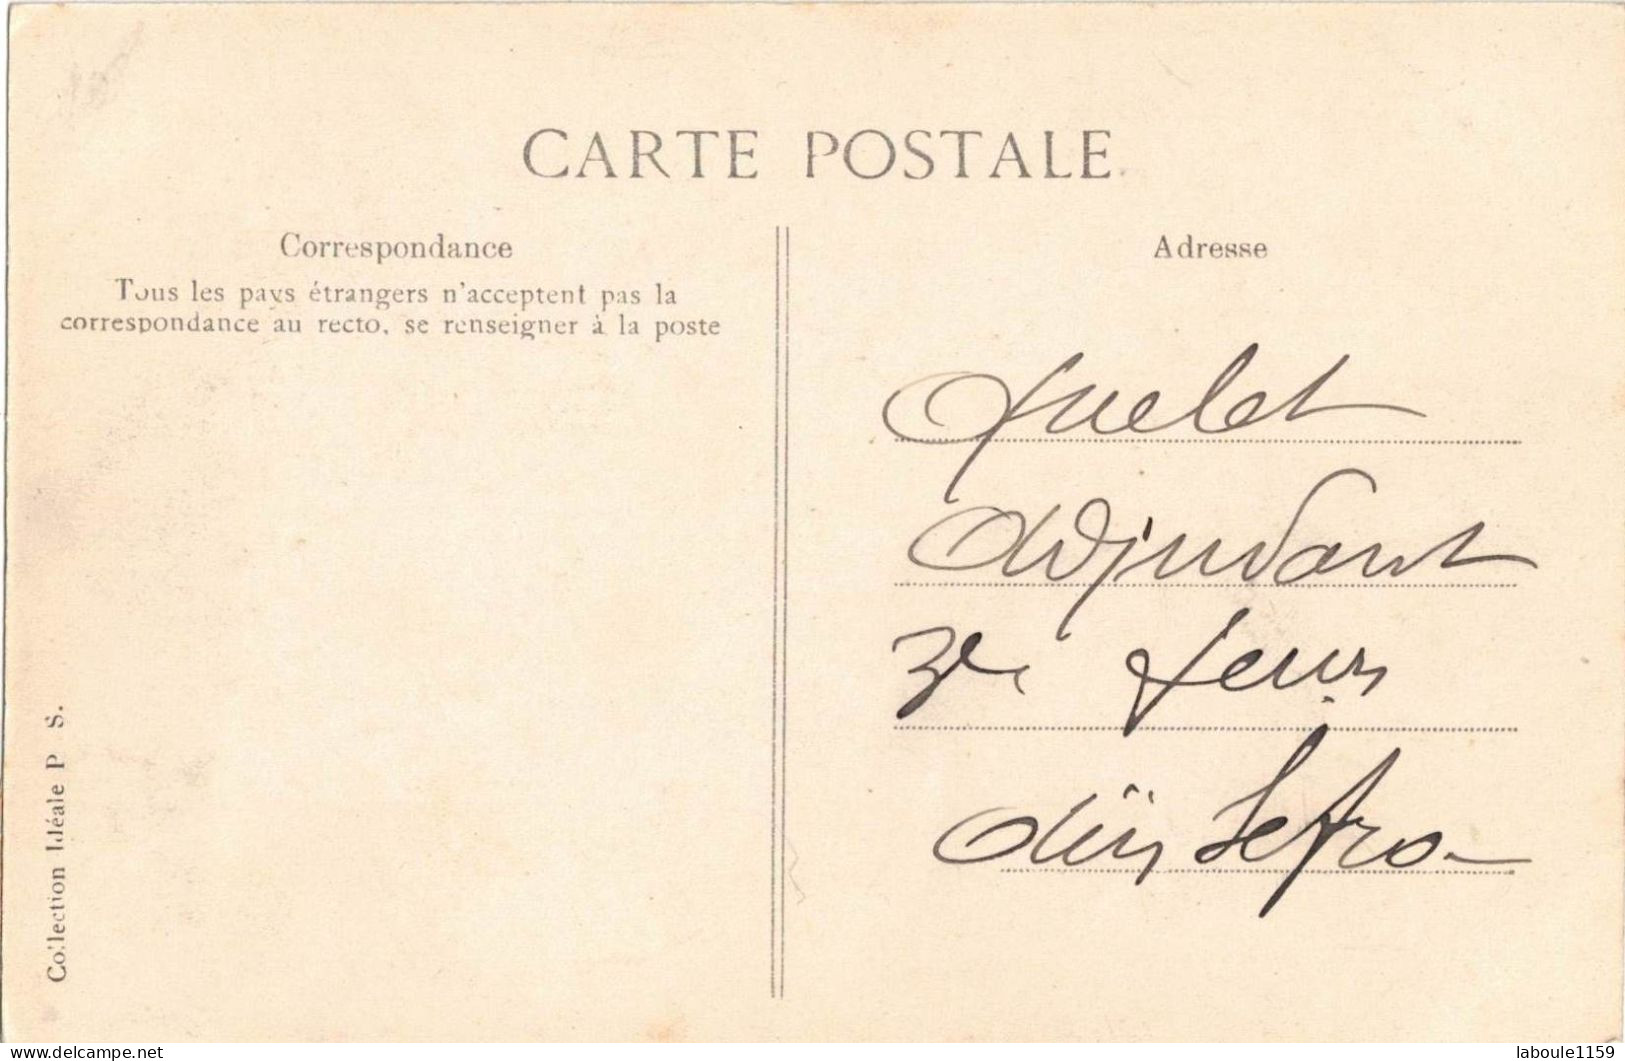 CARTE POSTALE
Correspondance
Tous les pays étrangers n'acceptent pas la
correspondance au recto, se renseigner à la poste
Adresse
Quelet
Adjudant
Aïn Sefra
Collection Idéale P S.
laboule1159